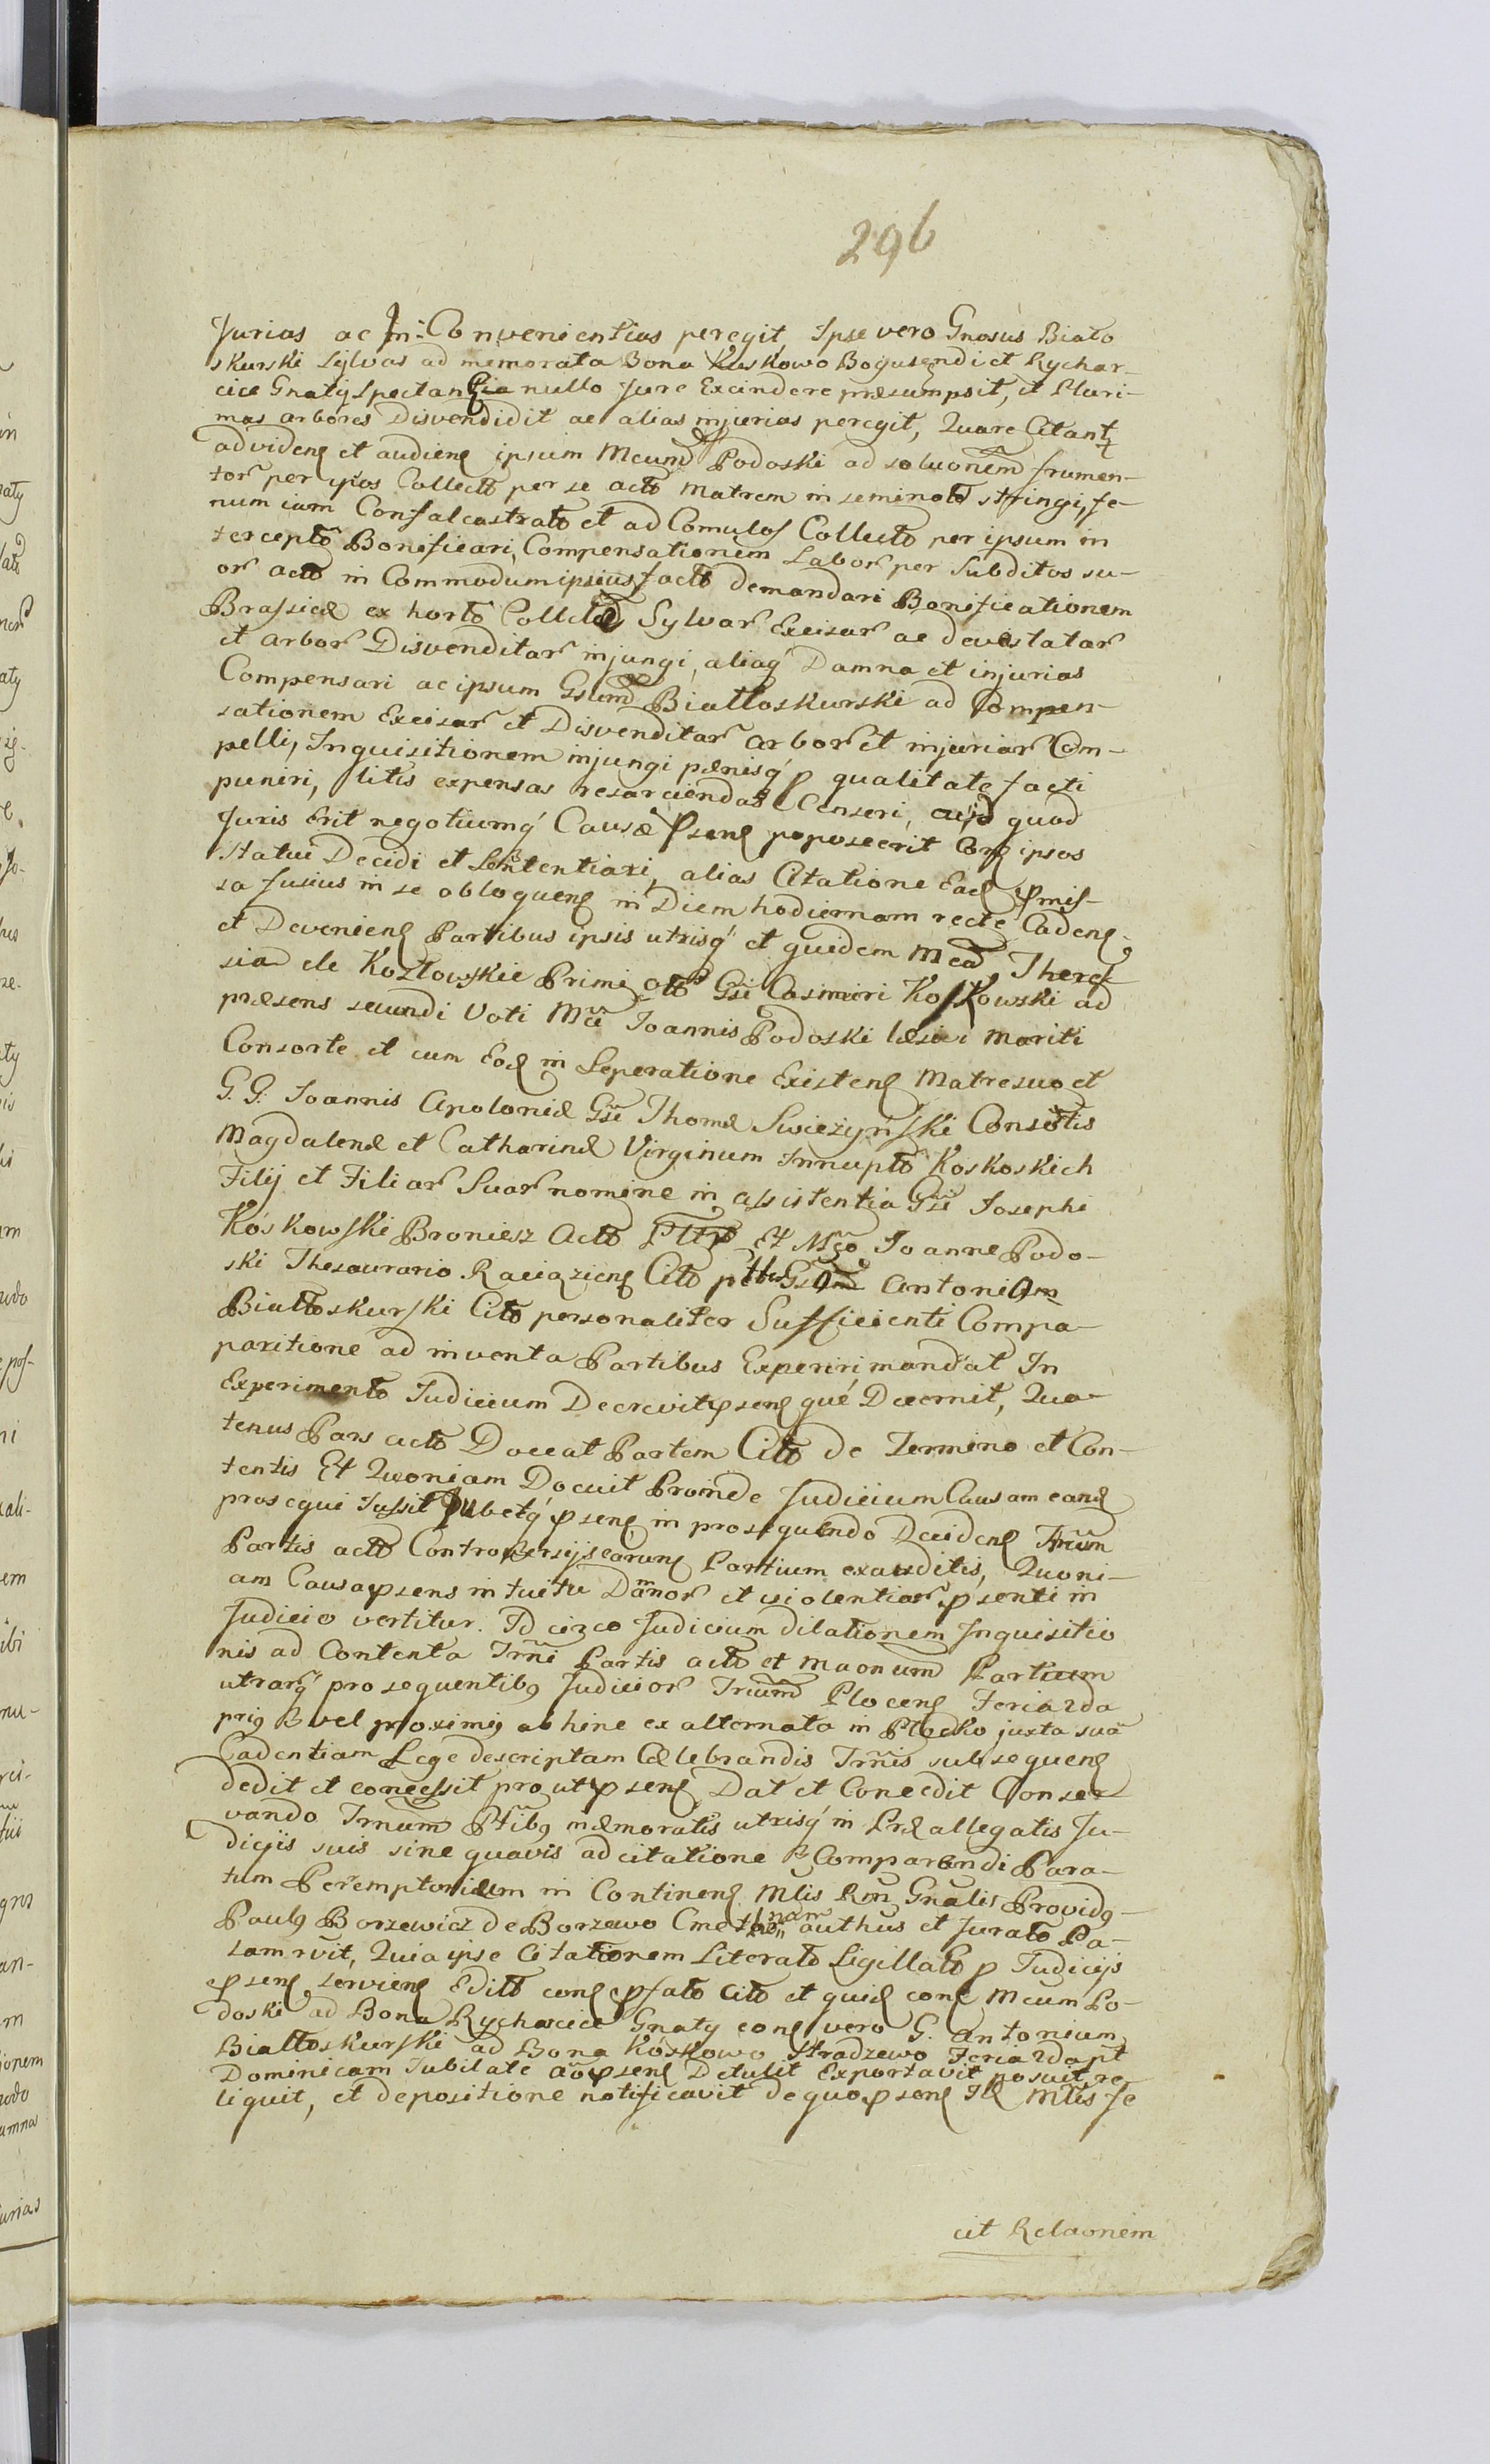 296
Jurias ac In-Convenientias peregit, Ipse vero Gnosus Biało
skurski Sylvas ad memorata Bona Koskowo Bogusendi et Rychar-
cice Gnaty Spectantia nullo Jure Excindere præsumpsit, et Pluri-
mas arbores Disvendidit ac alias injurias peregit, Quare Citant
ad videnᶁ et audienᶁ ipsum Mcum Podoski ad soluoñem frumen-
tor per ipsos Collecto per se acto Matrem in seminato stringi, fe-
num iam Confalcastrato et ad Comulos Collecto per ipsum in
tercepto Bonificari, Compensationem Labor per Subditos su-
or acto in Commodum ipsius facto demandari Bonificationem
Brassicæ ex horto Collectæ Sylvar Excisar ac devastatar
et arbor Disvenditar injungi, aliaq́ Damna et injurias
Compensari ac ipsum Gsum Białłoskurski ad Compen-
sationem Excisar et Disvenditar arbor et injuriar Com-
pelli, Inquisitionem injungi pænisq́ p qualitate facti
puneri, litis expensas resarciendas Censeri, quod
Juris Erit negotiumq́ Causæ psenᶁ poposcerit ipsos
Statui Decidi et Sententiari, alias Citatione Eaᶁ pmis-
sa fusius in se obloquenᶁ in Diem hodiernam recte Cadenᶁ
et Devenienᶁ Partibus ipsis utrisq́ et quidem Mca There-
sia de Kozłowskie Primi Gsi Casimiri Koskowski ad
præsens secundi Voti Mci Joannis Podoski Mariti
Consorte et cum Eoᶁ in Seperatione Existenᶁ Matre suo et
G. G. Joannis Apoloniæ Gsi Thomæ Swieżyński Consortis
Magdalenæ et Catharinæ Virginum Innupto Koskoskich
Filij et Filiar Suar nomine in assistentia Gsi Josephi
Koskowski Broniesz Acto Et Mco Joanne Podo-
ski Thesaurario Raciązienᶁ Cito Antonium
Białłoskurski Cito personaliter Sufficienti Compa-
paritione ad inventa Partibus Experiri mandat In
Experimento Judicium Decrevit psenᶁ que Decernit, Qua-
tenus Pars acto Doceat Partem Cito de Termino et Con-
tentis Et Quoniam Docuit Proinde Judicium Causam eanᶁ
prosequi Jussit Jubetq́ psenᶁ in prosequendo Decidenᶁ Trñum
Partis acto Controversijs earunᶁ Partium exauditis, Quoni-
am Causa psens intuitu Damnor et violentiar psenti in
Judicio vertitur. Id circo Judicium dilationem Inquisitio
nis ad Contenta Trñi Partis acto et Maonum Partium
utrarq́ prosequentibꝯ Judicior Trum Plocenᶁ Feria 2da
priꝯ vel proximiꝯ abhinc ex alternata in Płocko juxta suã
Cadentiam Lege descriptam Celebrandis Trñis subsequenᶁ
dedit et concessit prout psenᶁ Dat et Concedit Conser
vando Trnum Ptibꝯ memoratis utrisq́ in Præallegatis Ju-
dicijs suis sine quavis adcitatione Comparendi Para-
tum Peremptorium in Continenᶁ Mtis Rñ Gnalis Providꝯ
Paulꝯ Borzewicz de Borzewo authus et Jurato Pa-
lam rvit, Quia ipse Citationem Literato Sigillato p Judicijs
psenᶁ servienᶁ Edito conᶁ psato Cito et quiᶁ conᶁ Mcum Po-
doski ad Bona Rycharcice Gnaty conᶁ vero G. Antonium
Białtoskurski ad Bona Koskowo Stradzewo Feria 2da pt
Dominicam Jubilate aõ psenᶁ Detulit Exportavit posuit re
liquit, et depositione notificavit de quo psenᶁ Mtis fe
cit Relaonem